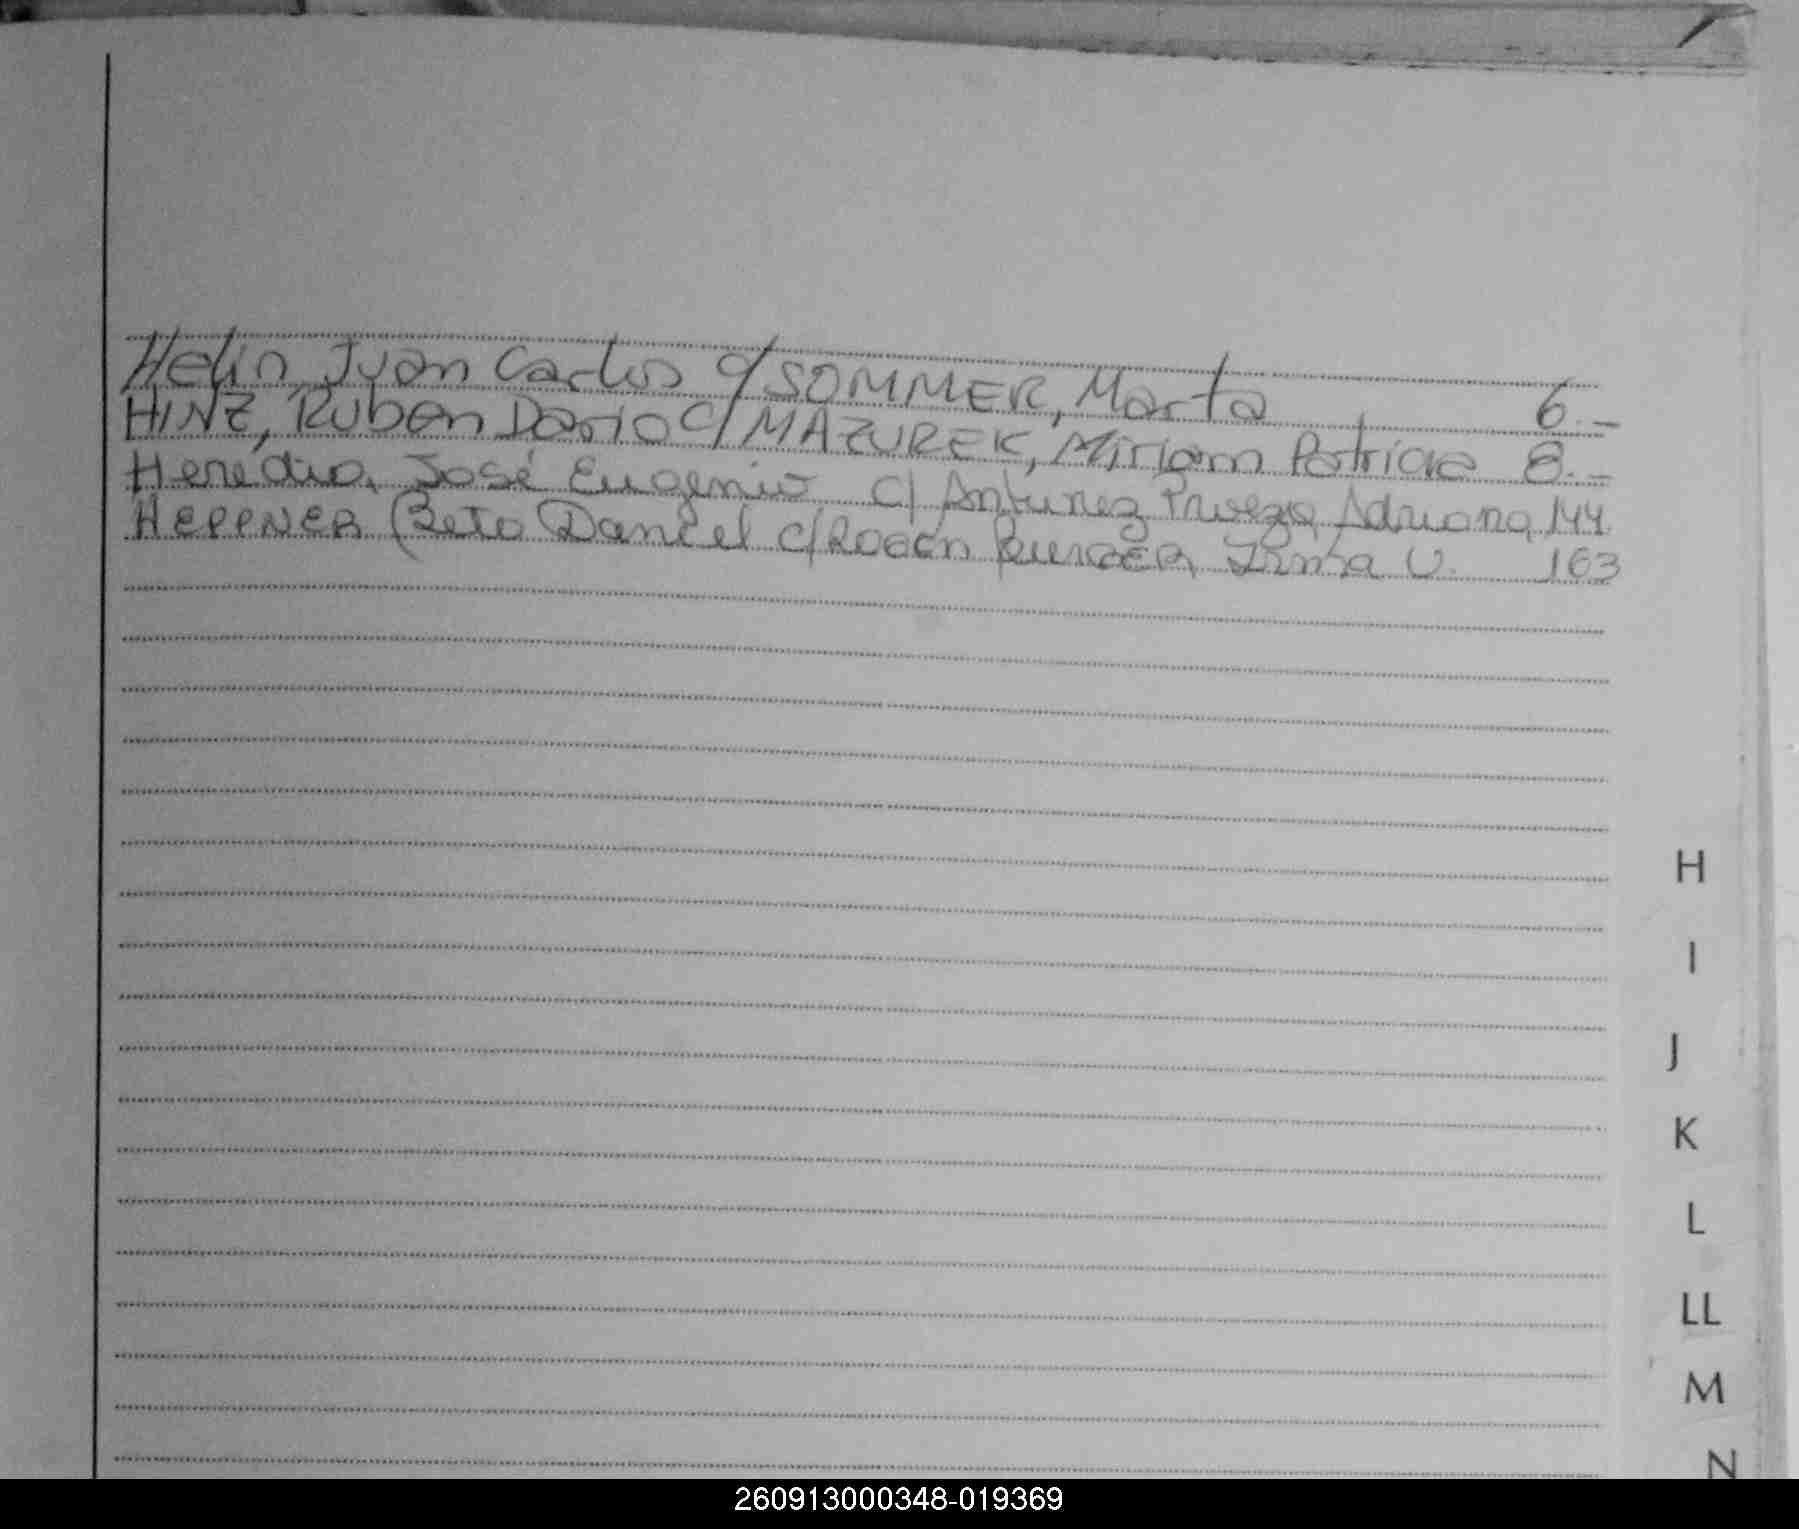 Helin, Juan Carlos c/ SOMMER, Marta 6.-
HINZ, Ruben Dario c/ MAZUREK, Miriam Patricia 8.-
Heredia, José Eugenio c/ Antunez Adriana 144
HEPPNER Beto Daniel c/ Irma 163
H
I
J
K
L
LL
M
N
260913000348-019369